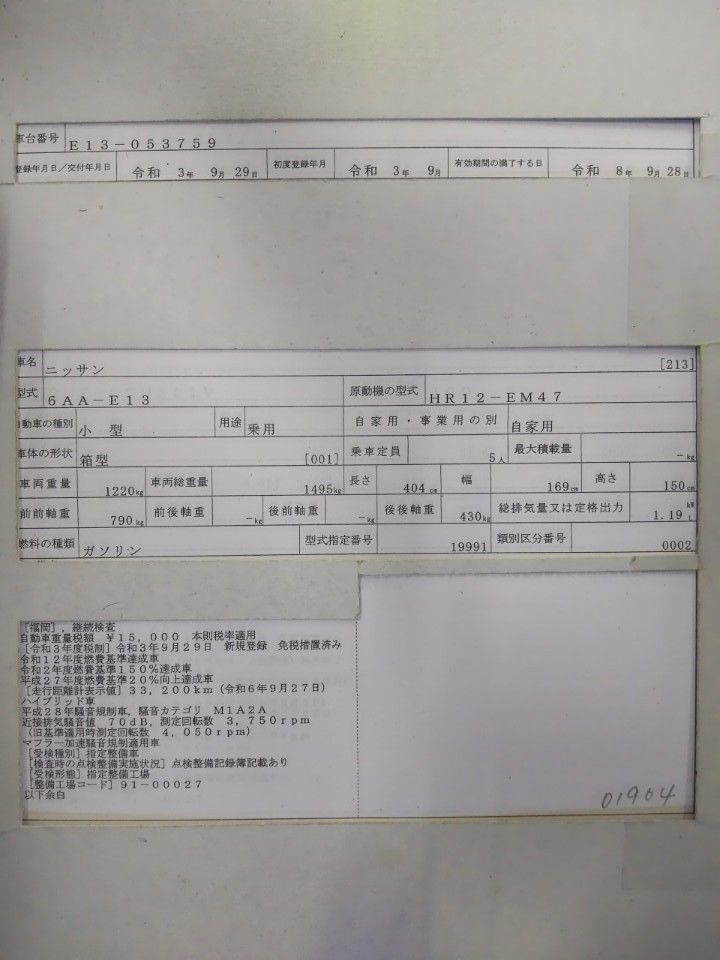 車台番号 E13-053759
登録年月日／交付年月日 令和 3年 9月 29日 初度登録年月 令和 3年 9月 有効期間の満了する日 令和 8年 9月 28日
車名 ニッサン [213]
型式 6AA-E13 原動機の型式 HR12-EM47
自動車の種別 小型 用途 乗用 自家用・事業用の別 自家用
車体の形状 箱型 [001] 乗車定員 5人 最大積載量 -kg
車両重量 1220kg 車両総重量 1495kg 長さ 404cm 幅 169cm 高さ 150cm
前前軸重 790kg 前後軸重 -kg 後前軸重 -kg 後後軸重 430kg 総排気量又は定格出力 1.19 kW L
燃料の種類 ガソリン 型式指定番号 19991 類別区分番号 0002
[福岡]，継続検査
自動車重量税額 ￥15,000 本則税率適用
[令和3年度税制] 令和3年9月29日 新規登録 免税措置済み
令和12年度燃費基準達成車
令和2年度燃費基準150％達成車
平成27年度燃費基準20％向上達成車
[走行距離計表示値] 33,200km (令和6年9月27日)
ハイブリッド車
平成28年騒音規制車，騒音カテゴリ M1A2A
近接排気騒音値 70dB，測定回転数 3,750rpm
(旧基準適用時測定回転数 4,050rpm)
マフラー加速騒音規制適用車
[受検種別] 指定整備車
[検査時の点検整備実施状況] 点検整備記録簿記載あり
[受検形態] 指定整備工場
[整備工場コード] 91-00027
以下余白
01904